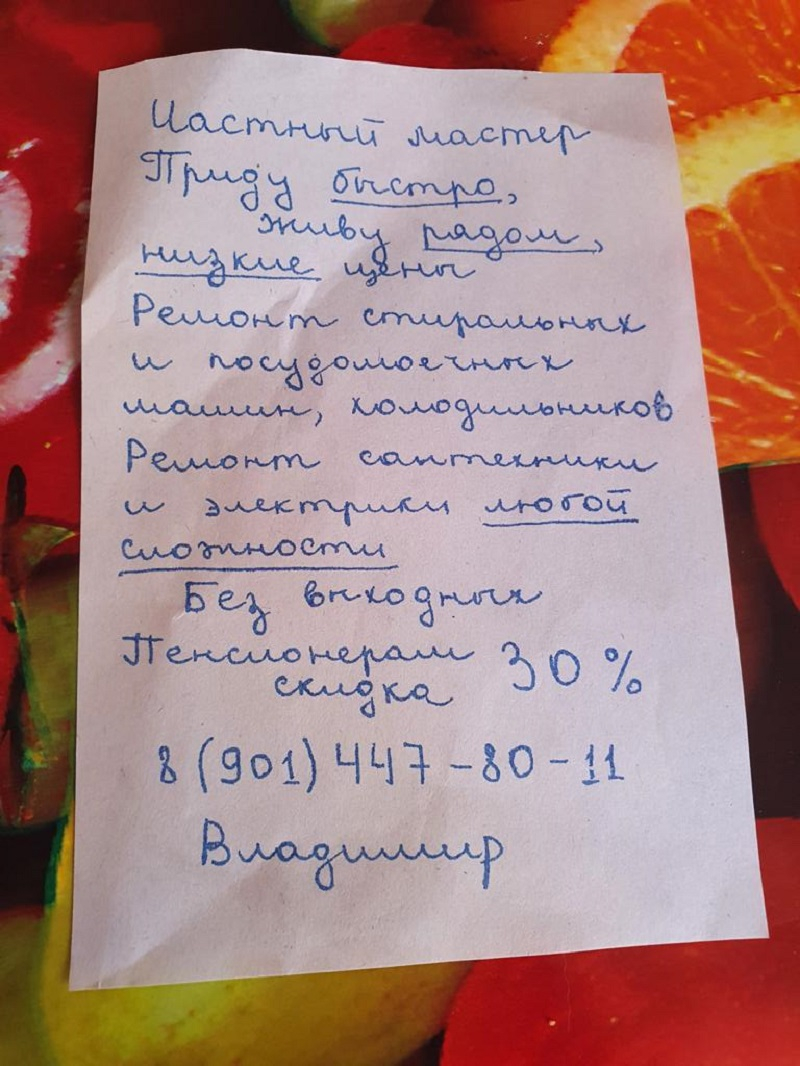 Частный мастер
Приду быстро,
живу рядом,
низкие цены
Ремонт стиральных
и посудомоечных
машин, холодильников
Ремонт сантехники
и электрики любой
сложности
Без выходных
Пенсионерам 30%
скидка
8 (901) 447-80-11
Владимир